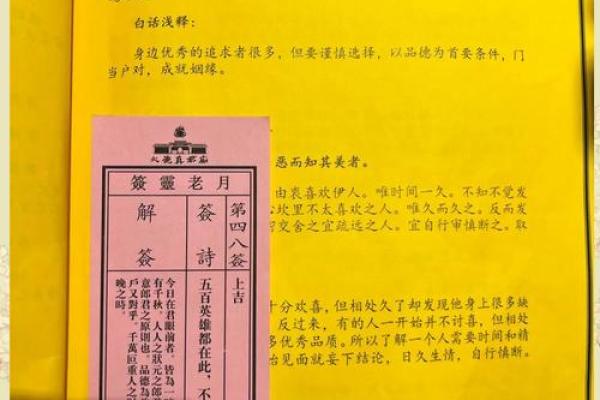 白话浅释:
身边优秀的追求者很多,但要谨慎选择,以品德为首要条件,门
当户对,成就姻缘。
恶而知其美者。
由衷喜欢伊人。唯时间一久。不知不觉发
心坎里不太喜欢之人。唯久而久之。反而发
交舍之宜疏远之人。宜自行审慎断之。取
十分欢喜,但相处久了却发现他身上很多缺
反过来,有的人一开始并不讨喜,但相处
多优秀品质。所以了解一个人需要时间和精
始见面就妄下结论,日久生情,自行慎断。
火德真君廟
月老靈簽
第四八簽
上吉
簽詩
五百英雄都在此,不
解簽
今日在君眼前者。皆為一
有千秋。人人之狀元之郎
意郎君之原則也。品德為
戶又對乎。千萬叵重人之
晚之時。